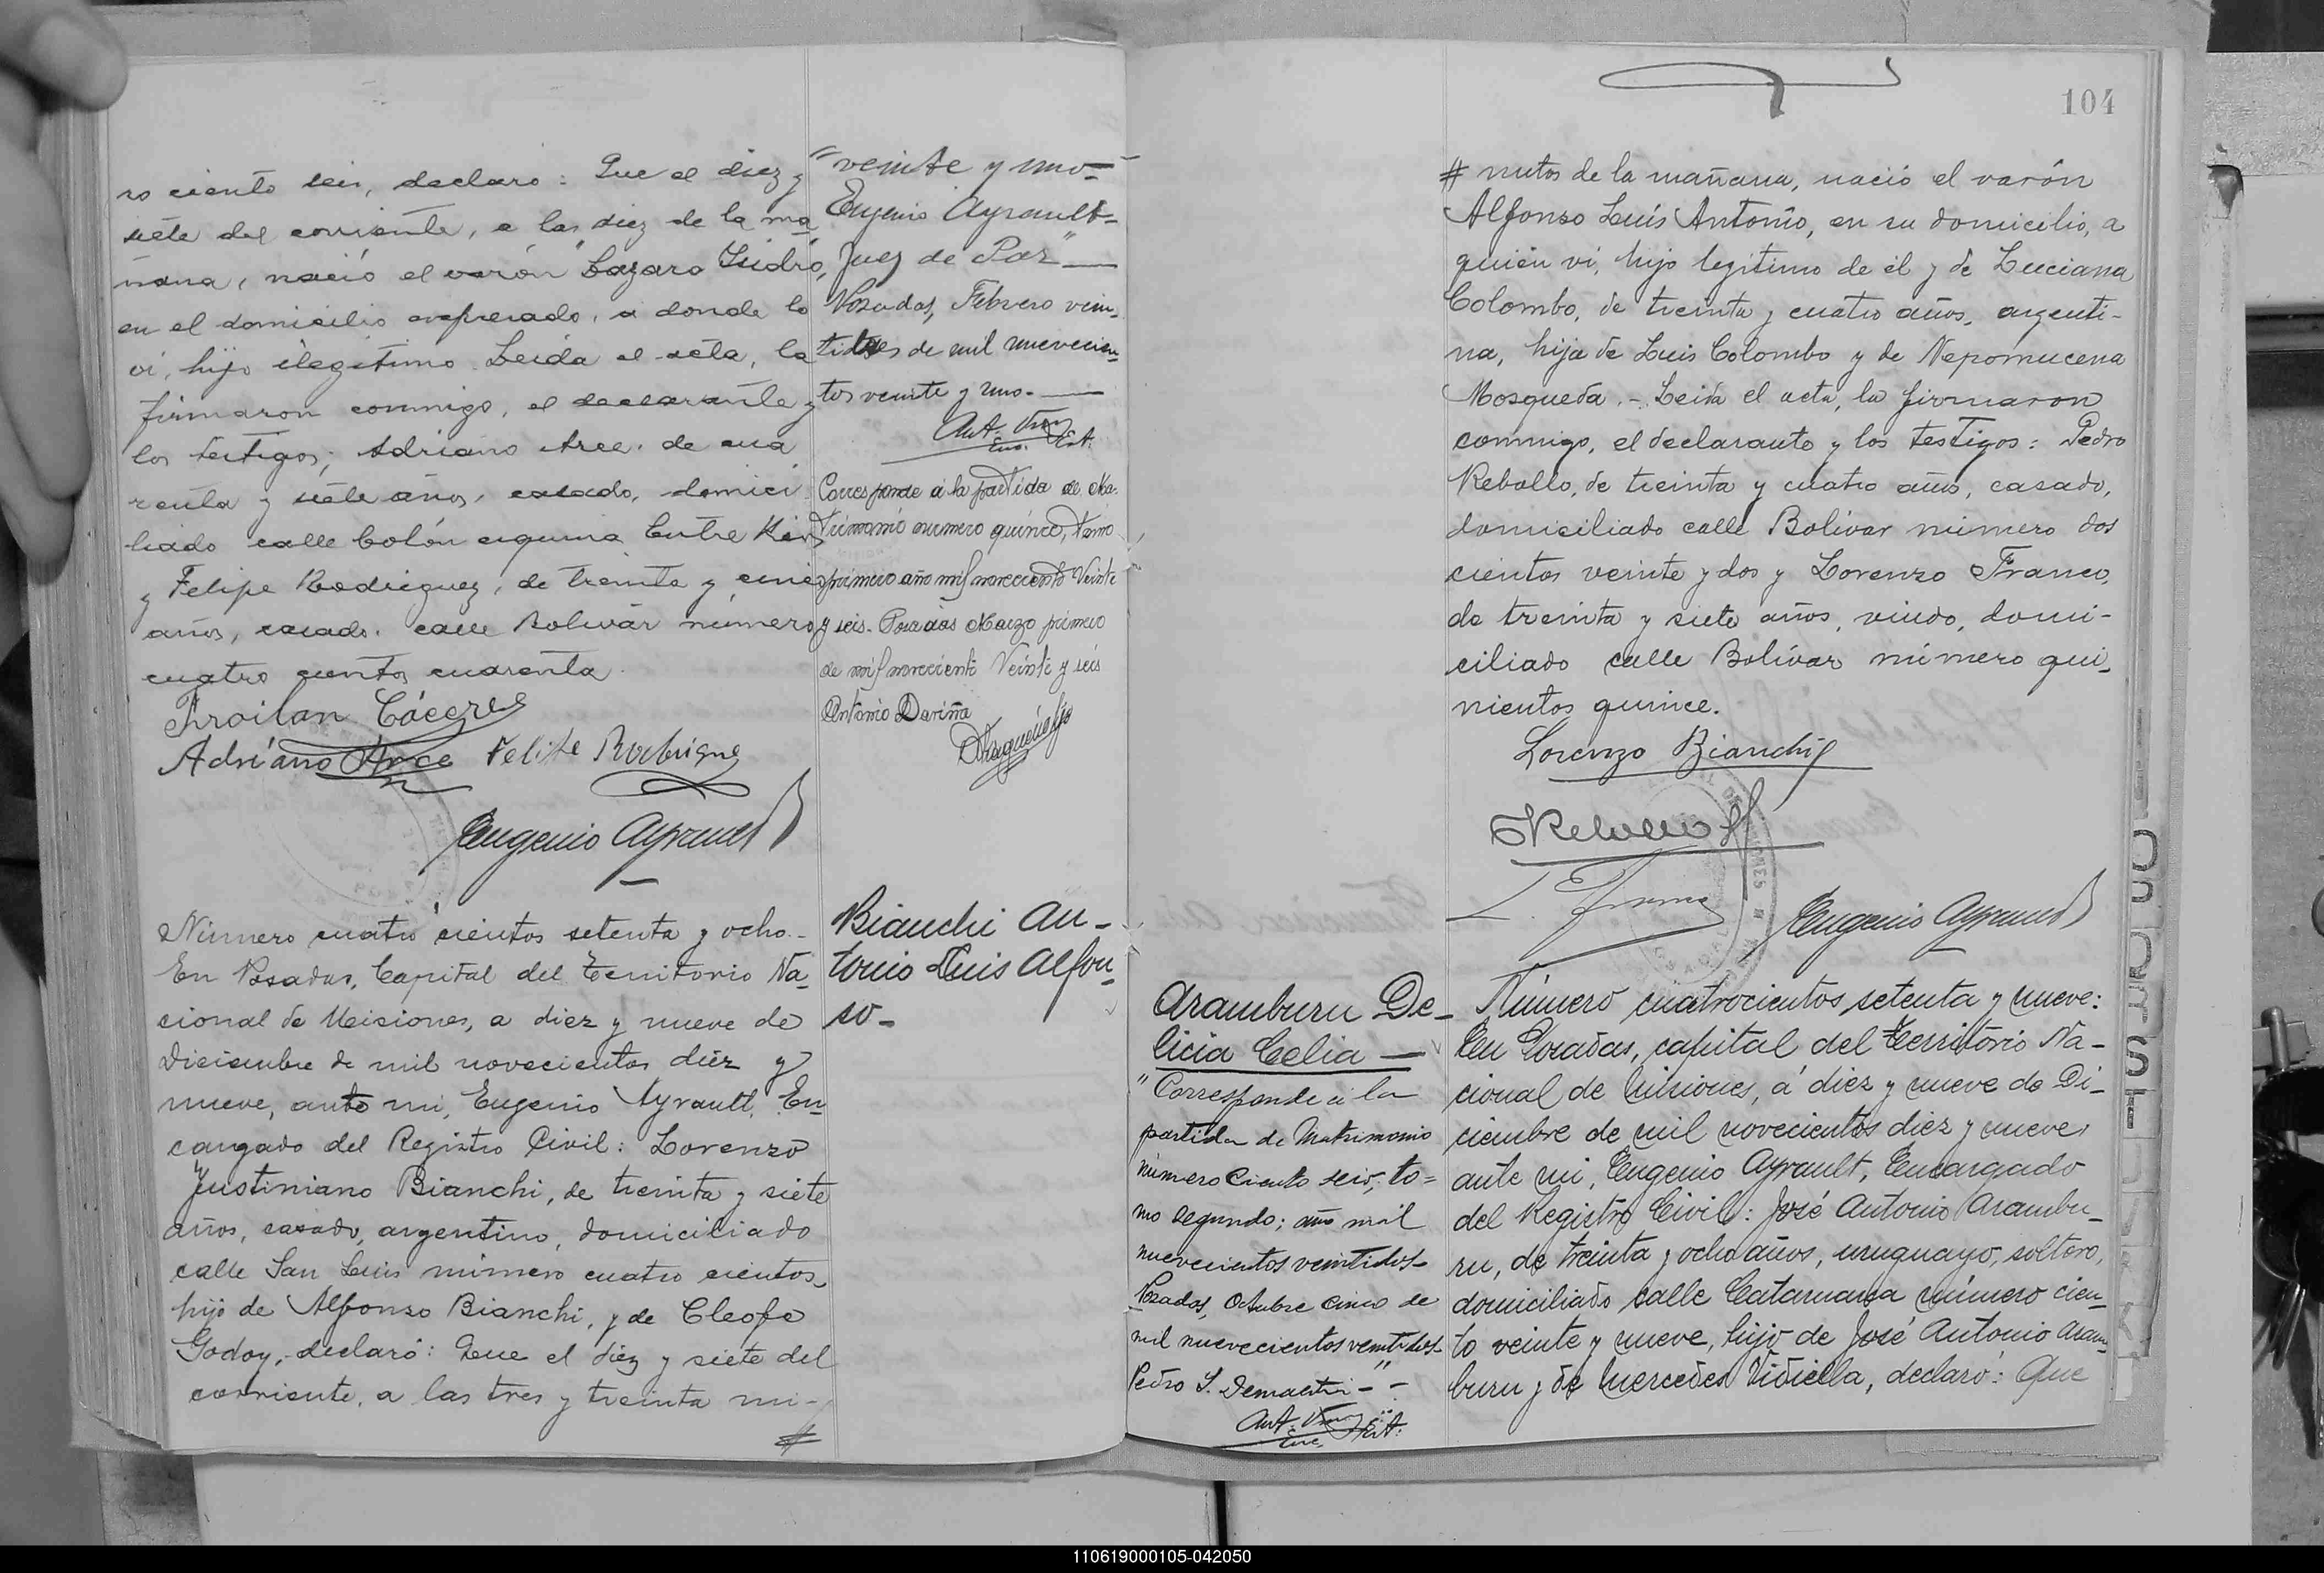 ro ciento seis, declaró: Que el diez y
siete del corriente, a las diez de la ma
ñana, nació el varón Lazaro Isidro,
en el domicilio expresado, a donde lo
vi, hijo ilegitimo. Leida el acta, la
firmaron conmigo, el declarante y
los testigos; Adriano Arce, de cua
renta y siete años, casado, domici
liado calle Colón esquina Entre Rios
y Felipe Rodriguez, de treinta y cinco
años, casado, calle Bolivar número
cuatro cientos cuarenta.
Froilan Cáceres
Adriano Arce Felipe Rodrigue
Eugenio Ayrault
"veinte y uno-
Eugenio Ayrault-
Juez de Paz"
Posadas, Febrero vein-
tidos de mil nuevecien-
tos veinte y uno.
Corresponde á la partida de Ma-
trimonio numero quince, tomo
primero año mil novecientos Veinte
y seis. Posadas Marzo primero
de mil novecientos Veinte y seis
Antonio Dariña
Número cuatro cientos setenta y ocho.-
En Posadas, Capital del Territorio Na-
cional de Misiones, a diez y nueve de
Diciembre de mil novecientos diez y
nueve, ante mi, Eugenio Ayrault, En-
cargado del Registro Civil: Lorenzo
Justiniano Bianchi, de treinta y siete
años, casado, argentino, domiciliado
calle San Luis número cuatro cientos,
hijo de Alfonso Bianchi, y de Cleofe
Godoy, declaró: Que el diez y siete del
corriente, a las tres y treinta mi-
#
Bianchi An-
tonio Luis Alfon-
so-
104
# nutos de la mañana, nació el varón
Alfonso Luis Antonio, en su domicilio, a
quién vi, hijo legítimo de él y de Luciana
Colombo, de treinta y cuatro años, argenti-
na, hija de Luis Colombo y de Nepomucena
Mosqueda.- Leida el acta, la firmaron
conmigo, el declarante y los testigos: Pedro
Rebollo, de treinta y cuatro años, casado,
domiciliado calle Bolivar número dos
cientos veinte y dos y Lorenzo Franco,
de treinta y siete años, viudo, domi-
ciliado calle Bolivar número qui-
nientos quince.
Lorenzo Bianchi
Rebollo
Eugenio Ayrault
Aramburu De-
licia Celia
"Corresponde á la
partida de Matrimonio
número Ciento seis, to=
mo segundo; año mil
nuevecientos veintidos-
Posadas, Octubre Cinco de
mil nuevecientos veintidos-
Pedro S. Demaestri-"-
Número cuatrocientos setenta y nueve:
En Posadas, capital del Territorio Na-
cional de Misiones, á diez y nueve de Di-
ciembre de mil novecientos diez y nueve,
ante mi, Eugenio Ayrault, Encargado
del Registro Civil: José Antonio Arambu-
ru, de treinta y ocho años, uruguayo, soltero,
domiciliado calle Catamarca número cien-
to veinte y nueve, hijo de José Antonio Aram-
buru y de Mercedes Vidiella, declaró: Que
110619000105-042050